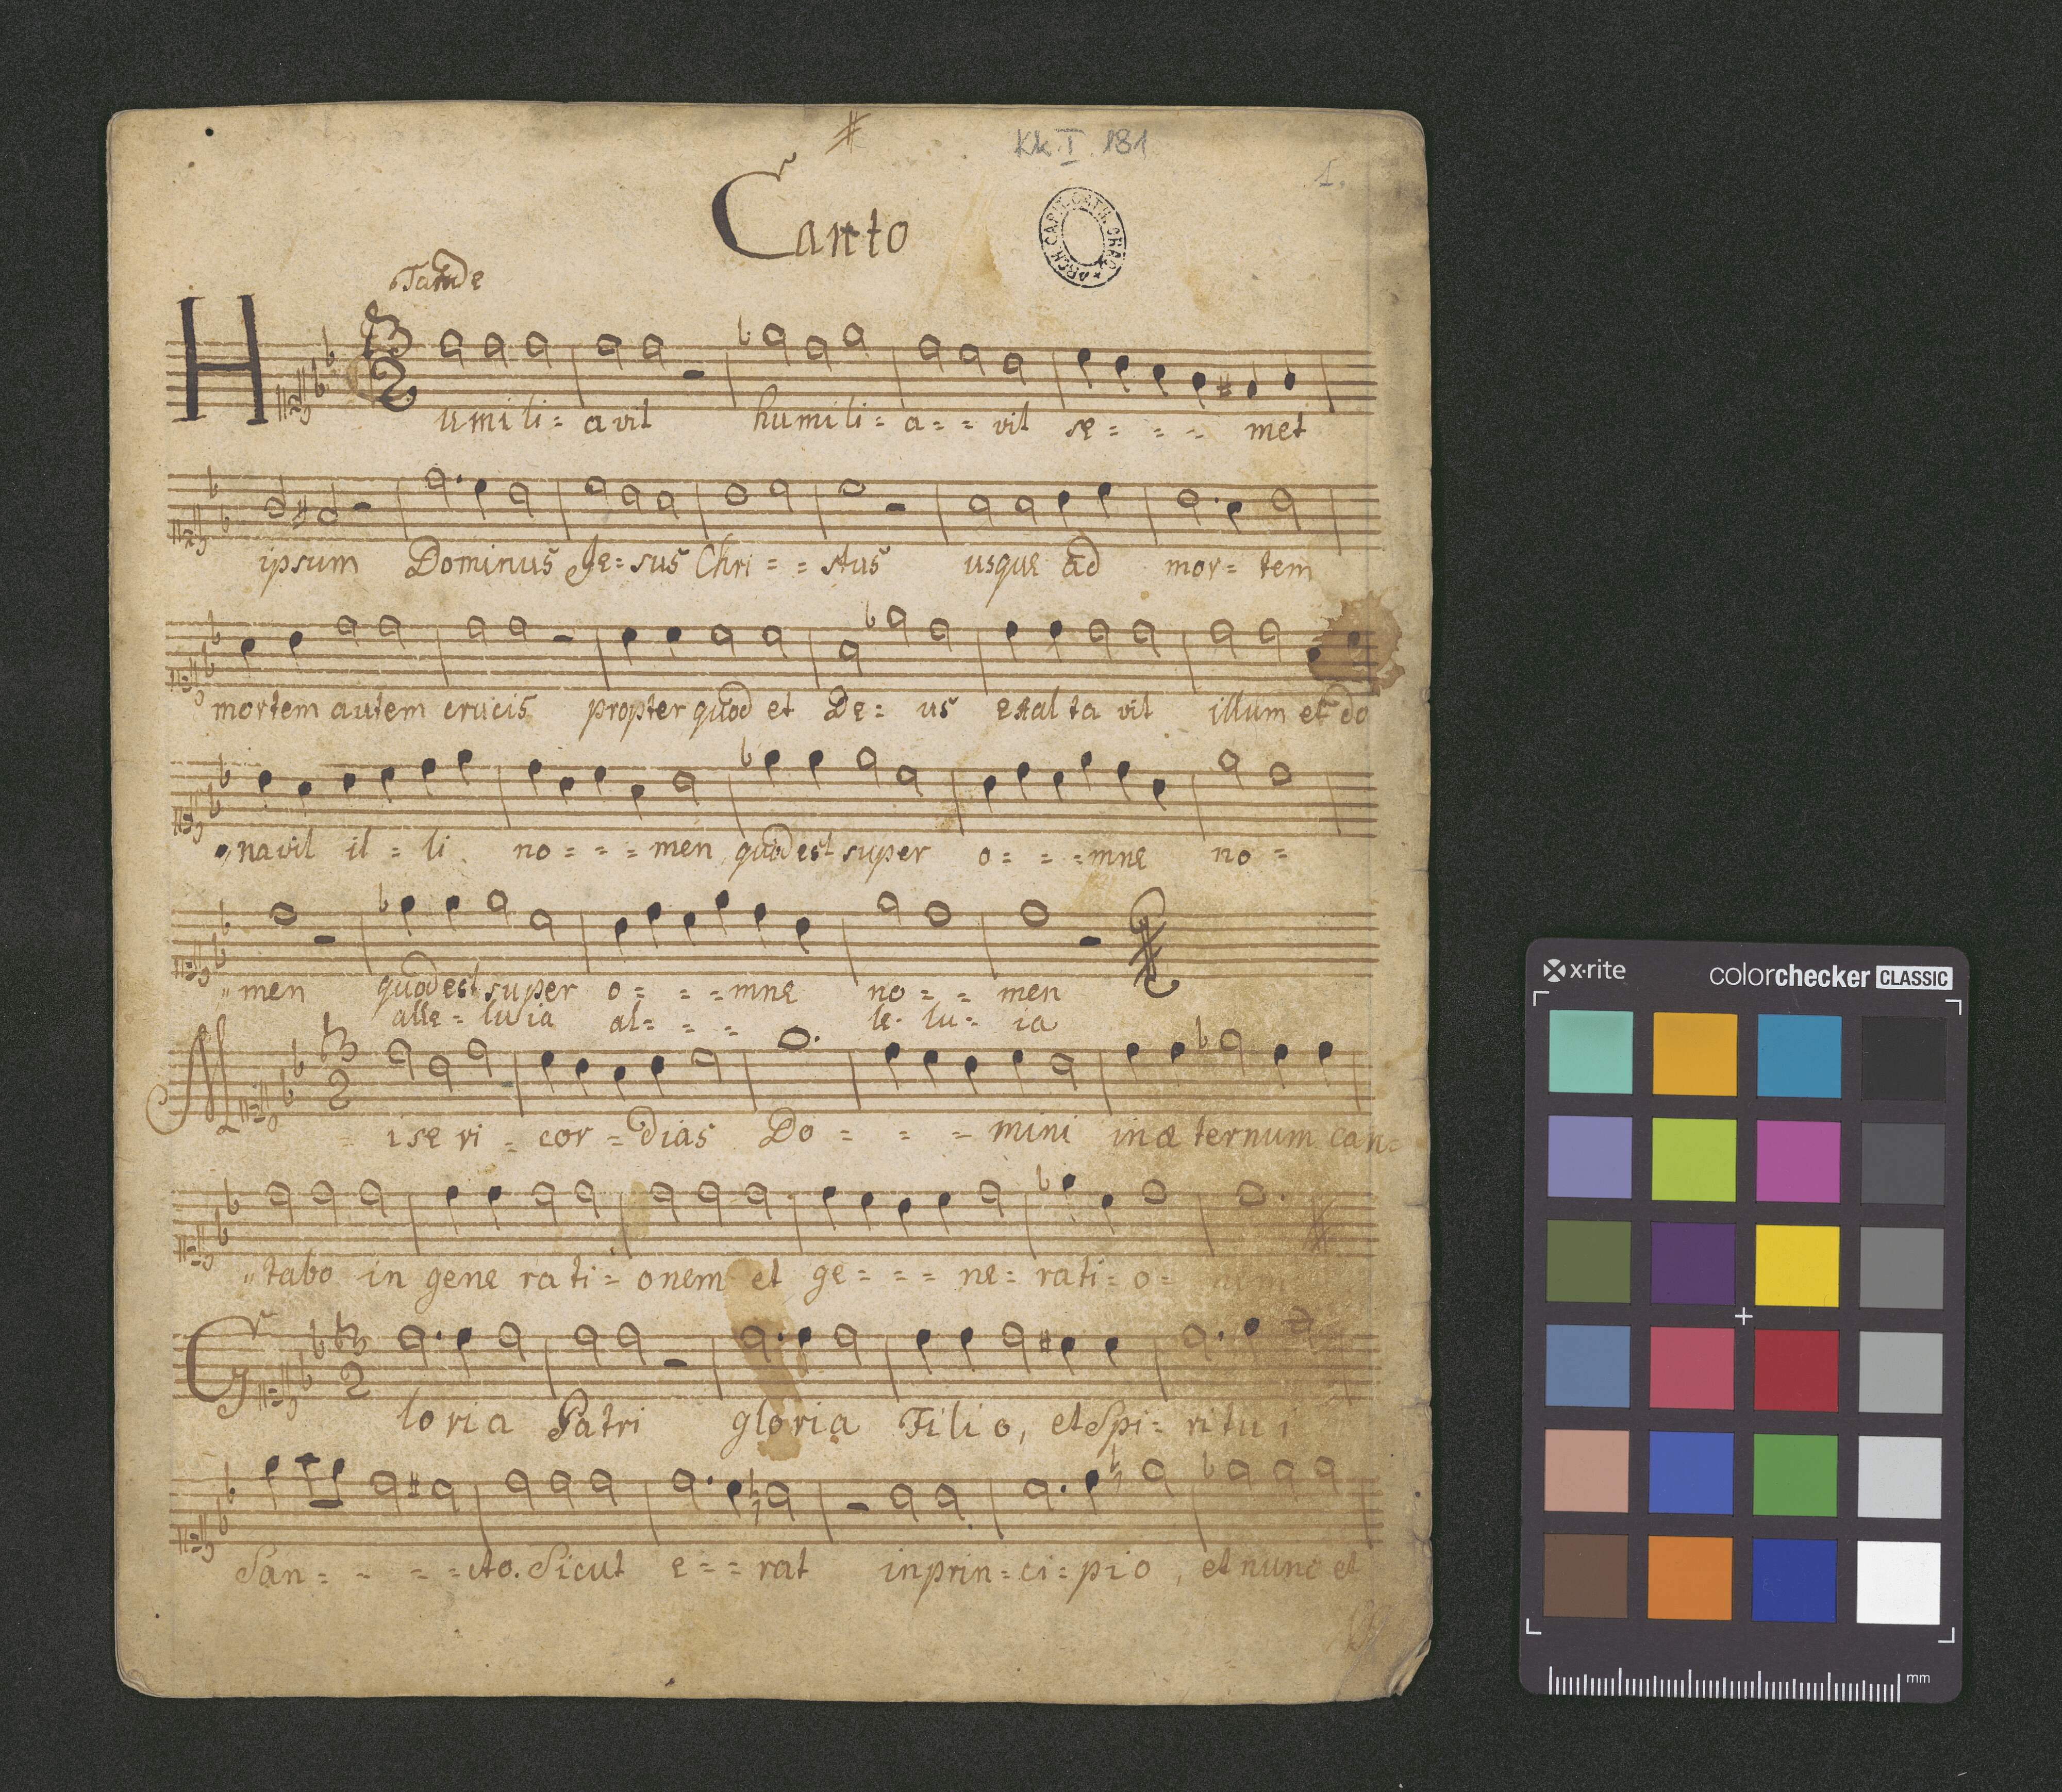 Kk. I. 181
1.
Canto
ARCH. CAPIT. CATH. CRAC.
Tarde
3
2
Humili = avit humili = a = = vit se = = = met
ipsum Dominus Je = sus Chri = = stus usque ad mor = tem
mortem autem crucis propter quod et De = us exal ta vit illum et do
navit il = li no = = = men quod est super o = = = mne no =
men quod est super o = = = mne no = = men
alle = luia al = = = le = lu = ia
3
2
Mise ri = cor = dias Do = = = mini in æ ternum can =
tabo in gene ra ti = onem et ge = = = ne = rati = o =
3
2
Gloria Patri gloria Filio, et Spi = ritu i
San = = = = cto. Sicut e = = rat in prin = ci = pio, et nunc et
x·rite
colorchecker CLASSIC
mm